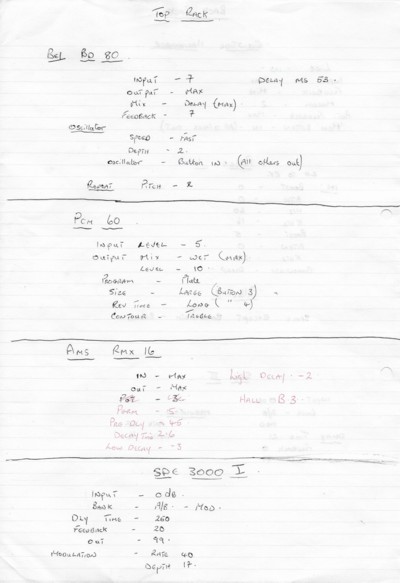 TOP RACK
BEL BD 80
INPUT - 7 DELAY MS 53.
OUTPUT - MAX
MIX - DELAY (MAX)
FEEDBACK - 7
OSCILLATOR
SPEED - FAST
DEPTH - 2.
OSCILLATOR - BUTTON IN. (ALL OTHERS OUT)
REPEAT PITCH - 2
PCM 60
INPUT LEVEL - 5.
OUTPUT MIX - WET (MAX)
LEVEL - 10
PROGRAM - PLATE
SIZE - LARGE (BUTTON 3)
REV TIME - LONG (" 4)
CONTOUR - TREBLE
AMS RMX 16
IN - MAX High DELAY - -2
OUT - MAX
HALL B3
PARM - 5
PRE DLY 45
DELAY TIME 2.6
LOW DELAY - -3
SDE 3000 I
INPUT - 0 dB
BANK - A/B - MOD.
DLY TIME - 260
FEEDBACK - 20
OUT - 99.
MODULATION - RATE 40
DEPTH 17.